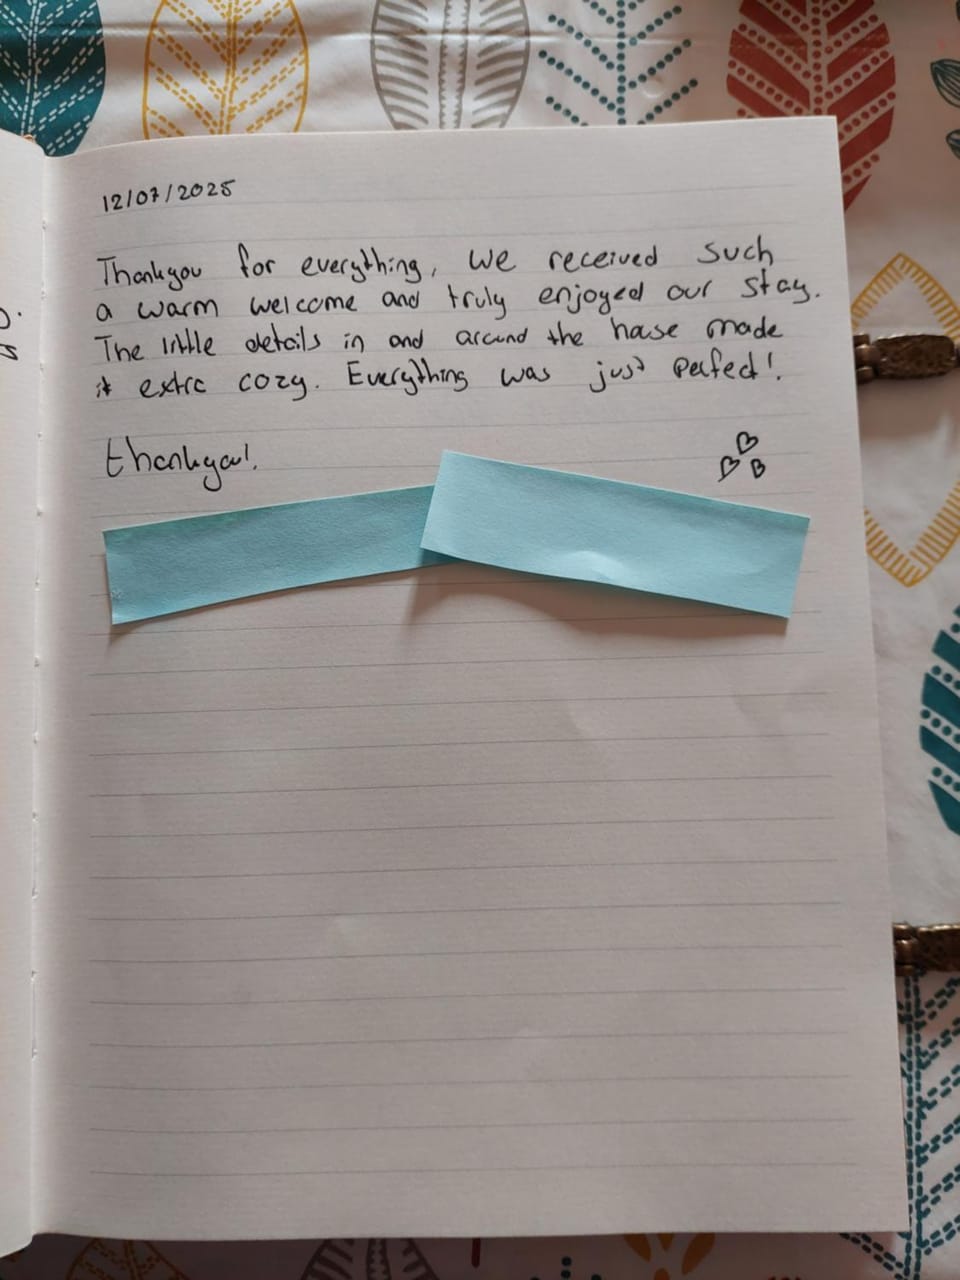 12/07/2025
Thankyou for everything, we received such
a warm welcome and truly enjoyed our stay.
The little details in and around the house made
it extra cozy. Everything was just perfect!
thankyou!